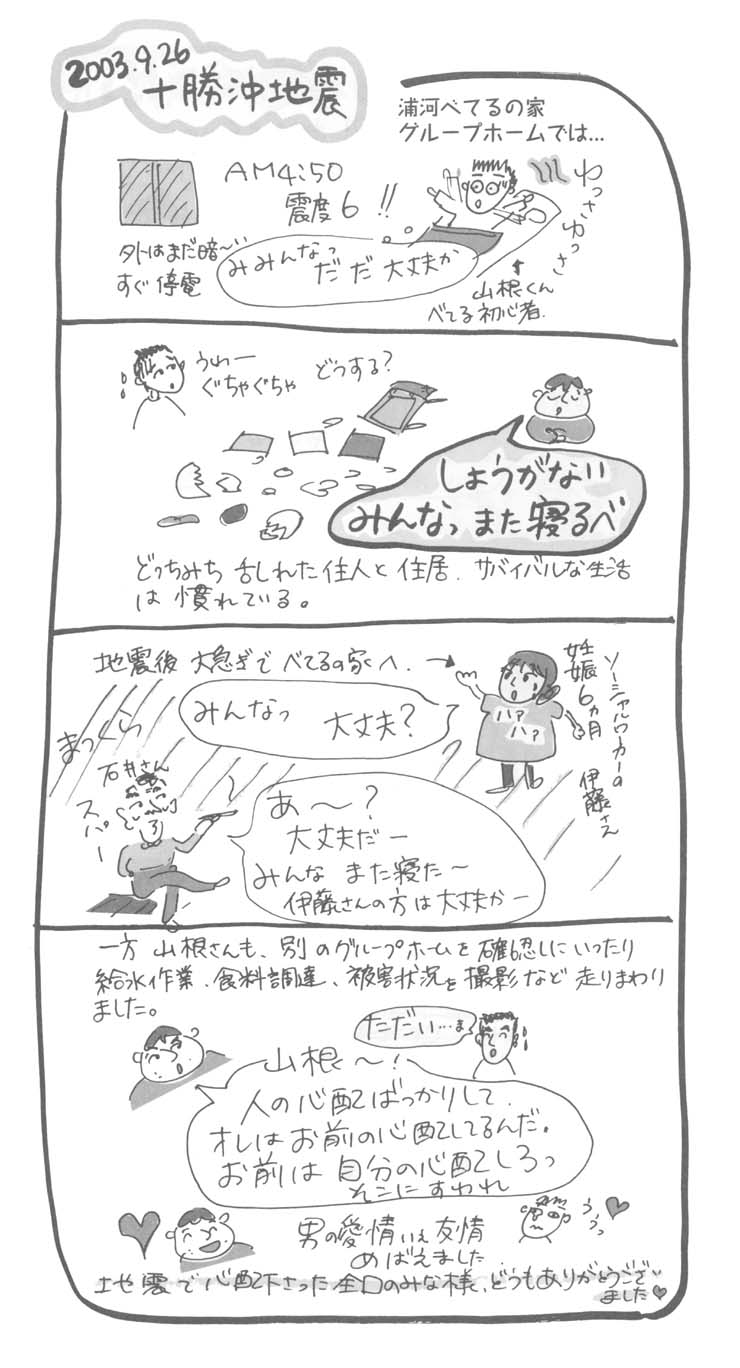 2003.9.26
十勝沖地震
浦河べてるの家
グループホームでは…
AM4:50
震度6!!
わっさゆっさ
外はまだ暗〜い
すぐ停電
みみんなっ
だだ大丈夫か
山根くん
べてる初心者.
うわー
ぐちゃぐちゃ
どうする?
しょうがない
みんなっ また寝るべ
どっちみち 乱れた住人と住居. サバイバルな生活
は慣れている。
地震後 大急ぎで べてるの家へ.
ソーシャルワーカーの
妊娠6ヵ月 伊藤さん
ハァ
ハァ?
みんなっ 大丈夫?
まっくら
石井さん
スパー
あ〜?
大丈夫だー
みんな また寝た〜
伊藤さんの方は大丈夫かー
一方 山根さんも、別のグループホームを確認しにいったり
給水作業、食料調達、被害状況を撮影など走りまわり
ました。
ただい…ま
山根〜!
人の心配ばっかりして.
オレはお前の心配してるんだ。
お前は 自分の心配しろっ
そこにすわれ
うぅっ
男の愛情いえ友情
めばえました
地震で心配下さった全国のみな様、どうもありがとうござい
ました♥